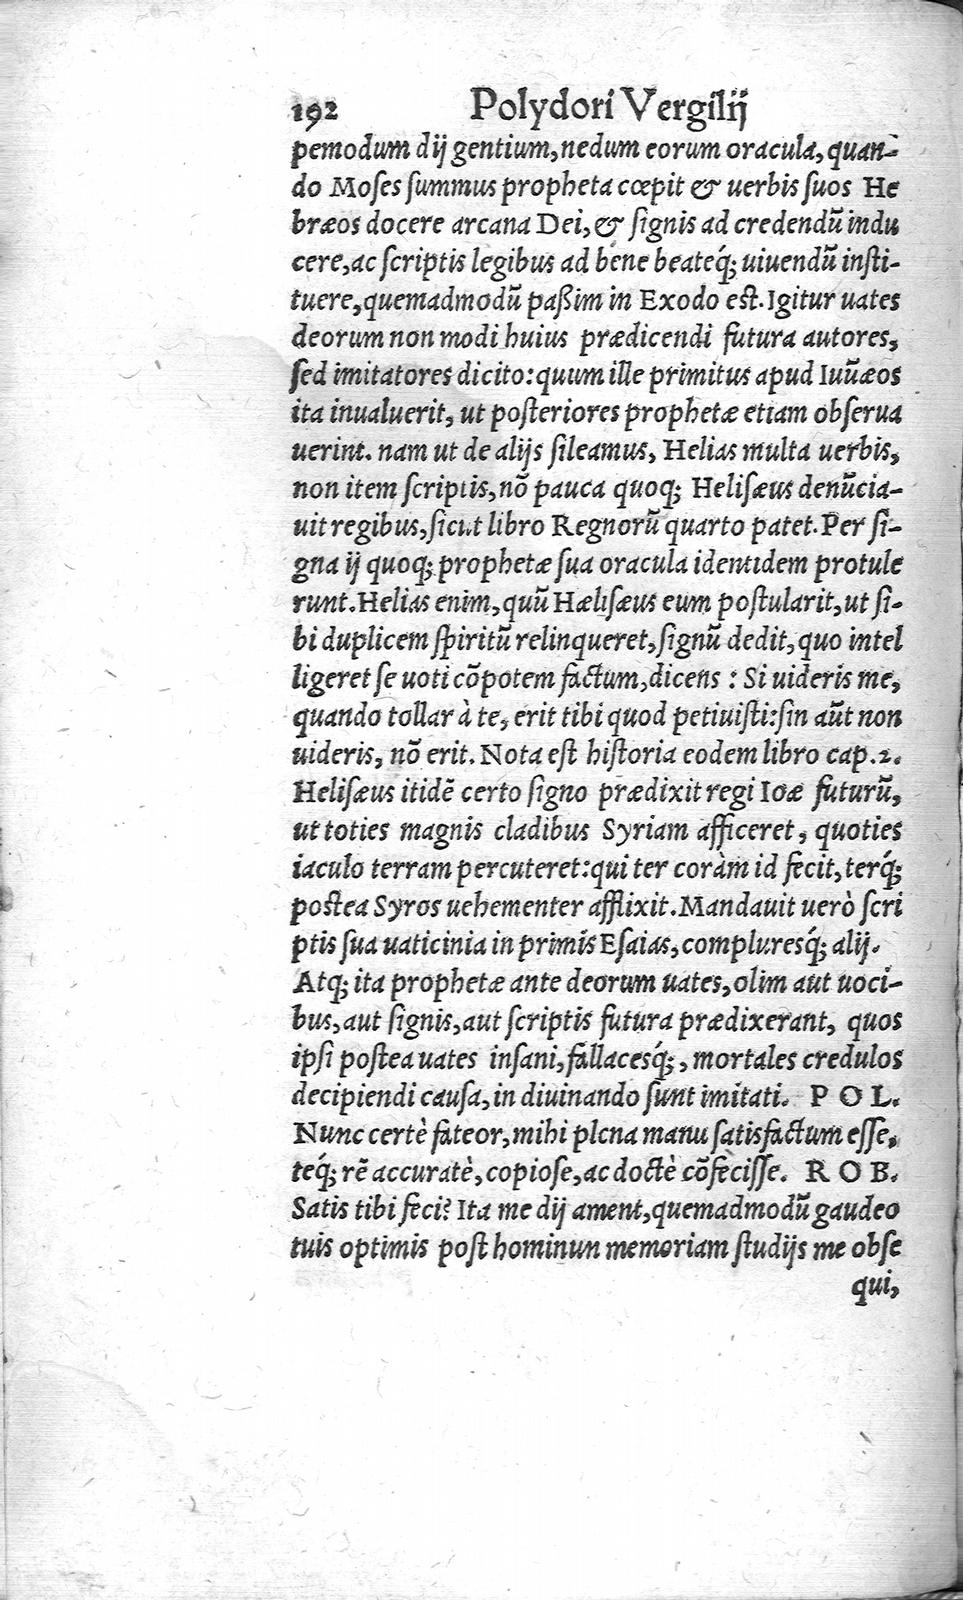 192 Polydori Vergilij
pemodum dij gentium, nedum eorum oracula, quan-
do Moſes ſummus propheta cœpit & uerbis ſuos He
bræos docere arcana Dei, & ſignis ad credendū indu
cere, ac ſcriptis legibus ad bene beateq́; uiuendū inſti-
tuere, quemadmodū paßim in Exodo eſt. Igitur uates
deorum non modi huius prædicendi futura autores,
ſed imitatores dicito: quum ille primitus apud Iuūæos
ita inualuerit, ut poſteriores prophetæ etiam obſerua
uerint. nam ut de alijs ſileamus, Helias multa uerbis,
non item ſcriptis, nō pauca quoq; Heliſæus denūcia-
uit regibus, ſicut libro Regnorū quarto patet. Per ſi-
gna ij quoq; prophetæ ſua oracula identidem protule
runt. Helias enim, quū Hæliſæus eum poſtularit, ut ſi-
bi duplicem ſpiritū relinqueret, ſignū dedit, quo intel
ligeret ſe uoti cōpotem factum, dicens : Si uideris me,
quando tollar à te, erit tibi quod petiuiſti: ſin aūt non
uideris, nō erit. Nota eſt hiſtoria eodem libro cap. 2.
Heliſæus itidē certo ſigno prædixit regi Ioæ futurū,
ut toties magnis cladibus Syriam afficeret, quoties
iaculo terram percuteret: qui ter coràm id fecit, terq́;
poſtea Syros uehementer afflixit. Mandauit uerò ſcri
ptis ſua uaticinia in primis Eſaias, compluresq́; alij.
Atq; ita prophetæ ante deorum uates, olim aut uoci-
bus, aut ſignis, aut ſcriptis futura prædixerant, quos
ipſi poſtea uates inſani, fallacesq́;, mortales credulos
decipiendi cauſa, in diuinando ſunt imitati. P O L.
Nunc certè fateor, mihi plena manu ſatisfactum eſſe,
teq́; rē accuratè, copioſe, ac doctè cōfeciſſe. R O B.
Satis tibi feci? Ita me dij ament, quemadmodū gaudeo
tuis optimis poſt hominun memoriam ſtudijs me obſe
qui,